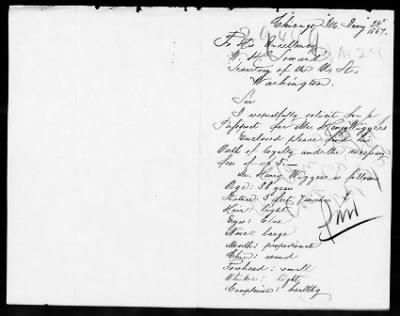 Chicago Ill. Jany 28th
1867.
To His Excellency
W. H. Seward
Secretary of the U. S.
Washington.
Sir
I respectfully solicit for a
Passport for Mr. Henry Wiggers
Enclosed please find his
Oath of loyalty and the necessary
fee of $ 5.—
Mr. Henry Wiggers is follows
Age: 38 years
Stature: 5 feet 7 inches
Hair: light
Eyes: blue
Nose: large
Mouth: proportionate
Chin: round
Forehead: small
Whiskers: light
Complexion: healthy